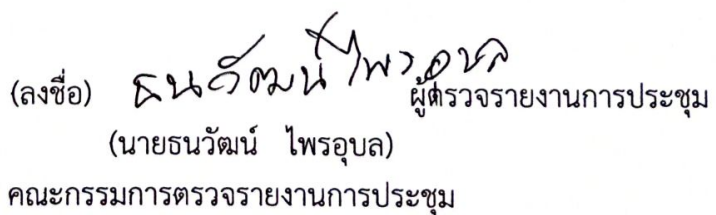 (ลงชื่อ) ธนวัฒน์ ไพรอุบล ผู้ตรวจรายงานการประชุม
(นายธนวัฒน์ ไพรอุบล)
คณะกรรมการตรวจรายงานการประชุม